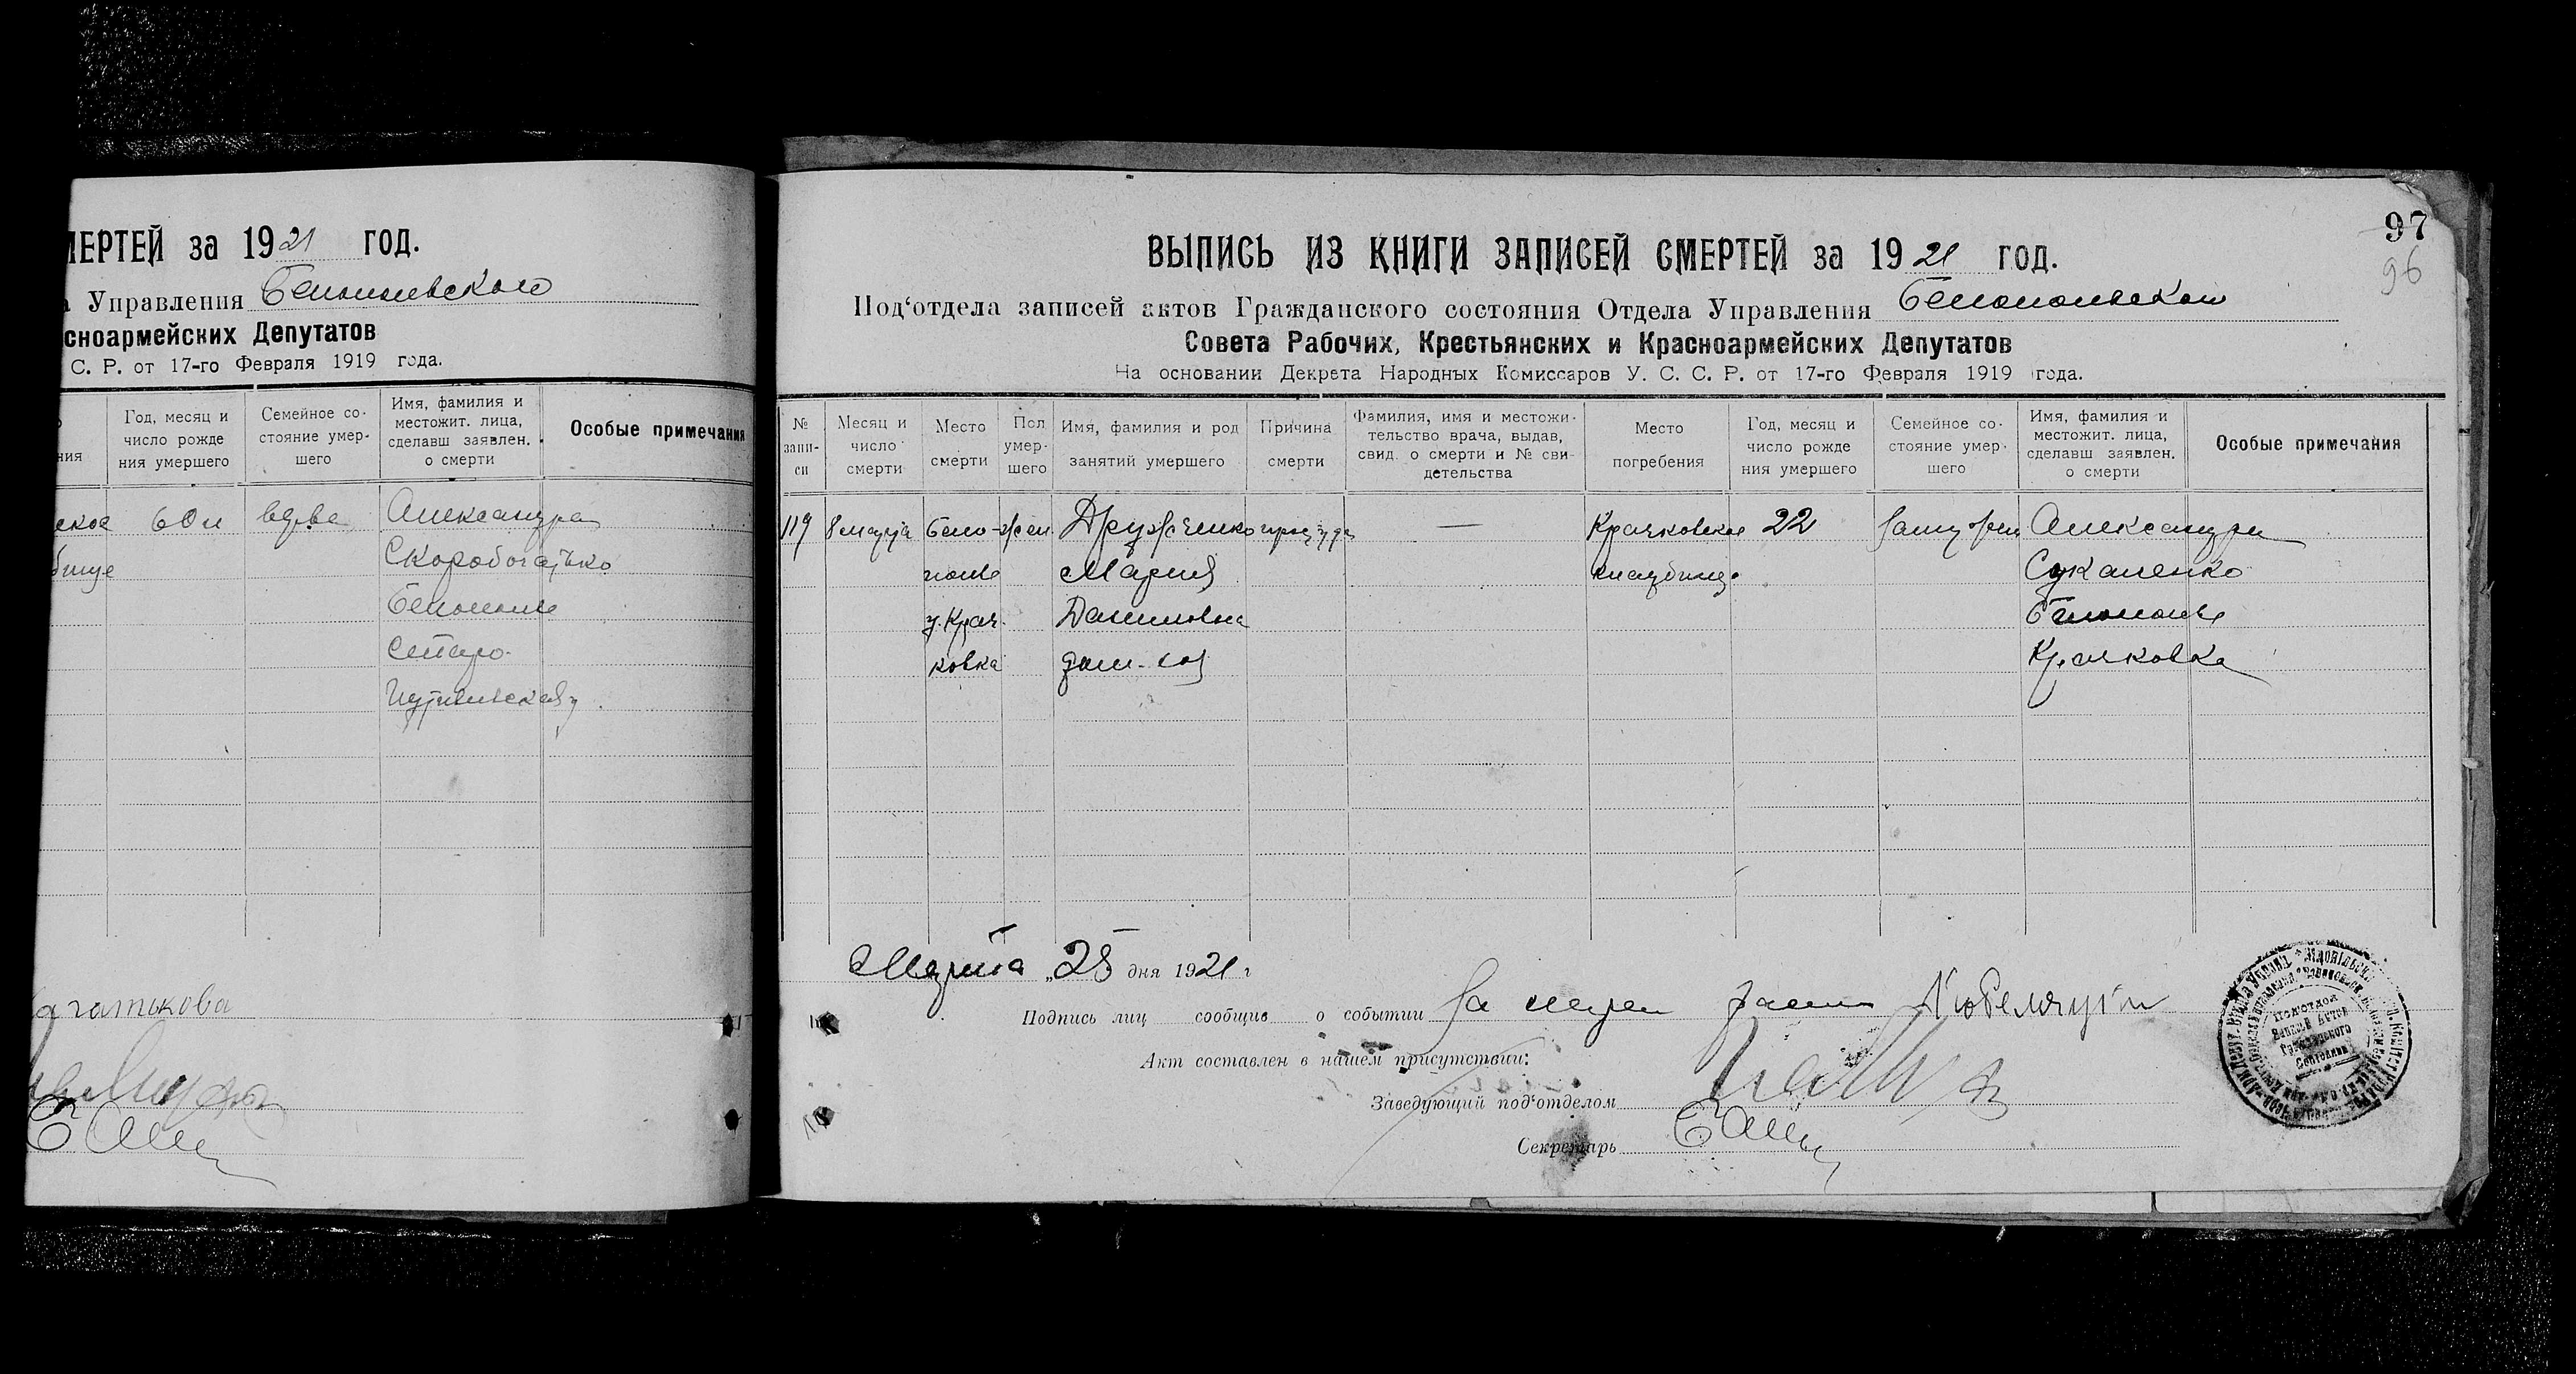 МЕРТЕЙ за 1921 год.
Управления Белопольского
сноармейских Депутатов
С. С. Р. от 17-го Февраля 1919 года.
ния
Год, месяц и число рождения умершего
Семейное состояние умершего
Имя, фамилия и местожит. лица, сделавш заявлен. о смерти
Особые примечания
ское 60 л вдова Александра
бище Скоробогатько
Белополье
Старо-
Путивльская
97
96
ВЫПИСЬ ИЗ КНИГИ ЗАПИСЕЙ СМЕРТЕЙ за 1921 год.
Под‘отдела записей актов Гражданского состояния Отдела Управления Белопольского
Совета Рабочих, Крестьянских и Красноармейских Депутатов
На основании Декрета Народных Комиссаров У. С. С. Р. от 17-го Февраля 1919 года.
№ запи-
си
Месяц и
число
смерти
Место
смерти
Пол
умер-
шего
Имя, фамилия и род
занятий умершего
Причина
смерти
Фамилия, имя и местожи-
тельство врача, выдав,
свид. о смерти и № сви-
детельства
Место
погребения
Год, месяц и
число рожде
ния умершего
Семейное со-
стояние умер-
шего
Имя, фамилия и
местожит. лица,
сделавш заявлен.
о смерти
Особые примечания
119 8 марта Бело- жен Дружченко простуда — Крачковское 22 замужем Александра
полье Мария кладбище Сукаленко
у. Крач- Даниловна Белополье
ковка дом-хоз Крачковка
Марта „25 дня 1921 г
Подпись лиц сообщив о событии За негр
Акт составлен в нашем присутствии:
Заведующий под‘отделом
Секретарь